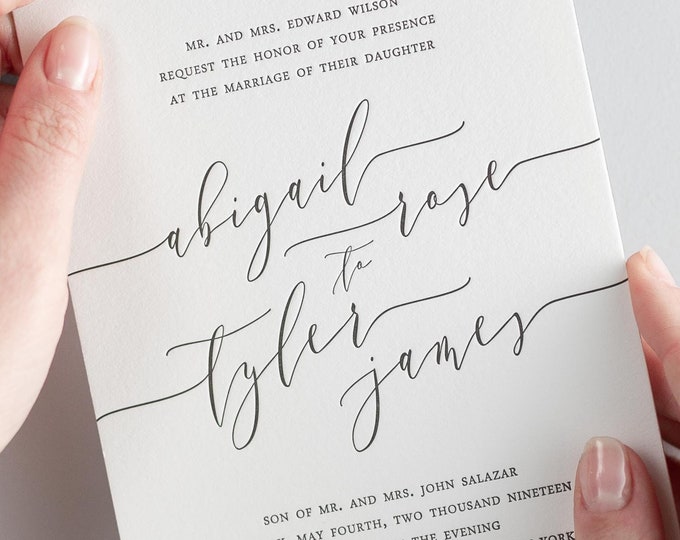 MR. AND MRS. EDWARD WILSON
REQUEST THE HONOR OF YOUR PRESENCE
AT THE MARRIAGE OF THEIR DAUGHTER
abigail
rose
to
tyler
james
SON OF MR. AND MRS. JOHN SALAZAR
, MAY FOURTH, TWO THOUSAND NINETEEN
THE EVENING
YORK